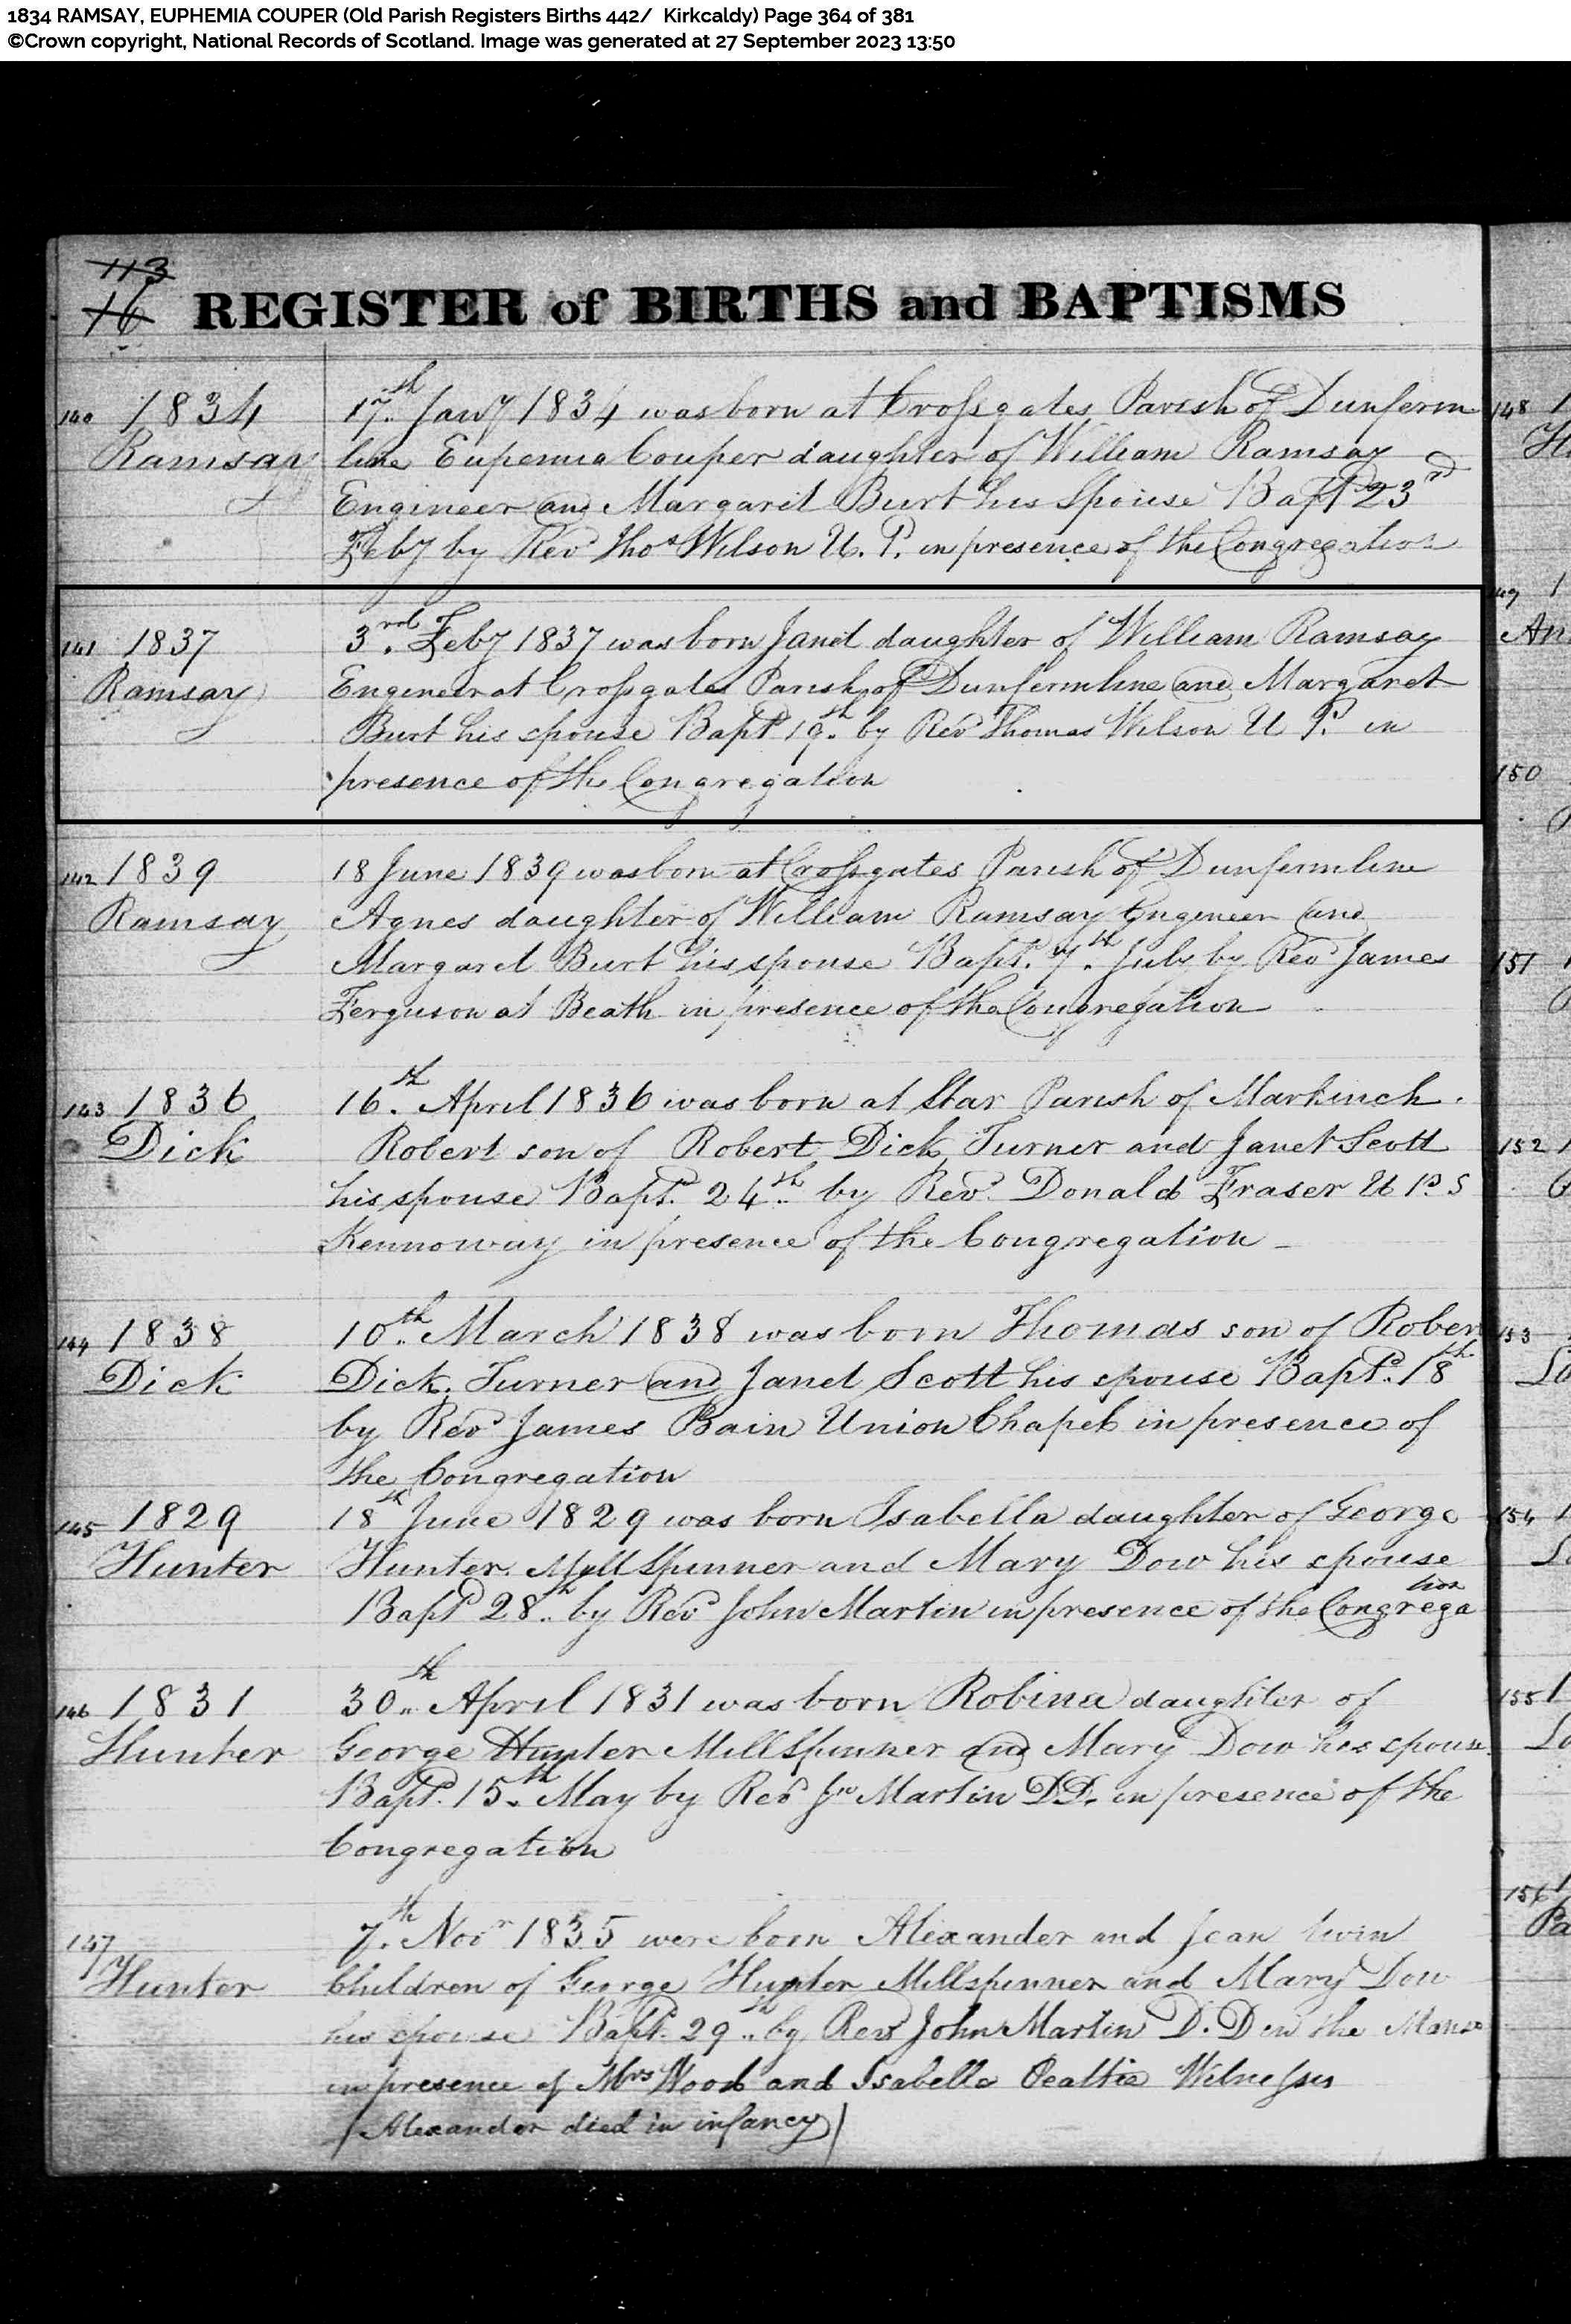 1834 RAMSAY, EUPHEMIA COUPER (Old Parish Registers Births 442/ Kirkcaldy) Page 364 of 381
©Crown copyright, National Records of Scotland. Image was generated at 27 September 2023 13:50
113
16
REGISTER of BIRTHS and BAPTISMS
140 1834 17th Jany 1834 was born at Crossgates Parish of Dunferm
Ramsay line Eupemia Couper daughter of William Ramsay
Engineer and Margaret Burt his Spouse Bapt 23rd
Feby by Revd Thos Wilson U. P. in presence of the Congregation
141 1837 3rd Feby 1837 was born Janet daughter of William Ramsay
Ramsay Engineer at Crossgates Parish of Dunfermline and Margaret
Burt his spouse Bapd 19th by Revd Thomas Wilson U P. in
presence of the Congregation
142 1839 18 June 1839 was born at Crossgates Parish of Dunfermline
Ramsay Agnes daughter of William Ramsay Engineer and
Margaret Burt his spouse Bapt. 7th July by Revd James
Ferguson at Beath in presence of the Congregation
143 1836 16th April 1836 was born at Star Parish of Markinch.
Dick Robert son of Robert Dick, Turner and Janet Scott
his spouse Bapd. 24th by Revd. Donald Fraser U P S
Kennoway in presence of the Congregation
144 1838 10th March 1838 was born Thomas son of Rober
Dick Dick, Turner and Janet Scott his spouse Bapd. 18th
by Revd James Bain Union Chapel in presence of
the Congregation
145 1829 18th June 1829 was born Isabella daughter of George
Hunter Hunter Mill Spinner and Mary Dow his spouse
Bapd 28th by Revd John Martin in presence of the Congregation
146 1831 30th April 1831 was born Robina daughter of
Hunter George Hunter Mill Spinner and Mary Dow his spouse
Bapd. 15th May by Revd Jno Martin D.D. in presence of the
Congregation
147 7th Novr 1835 were born Alexander and Jean twin
Hunter Children of George Hunter Millspinner and Mary Dow
his spouse Bapd. 29th by Revd John Martin D.D in the Manse
in presence of Mrs Wood and Isabella Beattie Witnesses
(Alexander died in infancy)
148 1
149 1
An
150
151
152 1
153
154 1
155 1
156 1
Pa